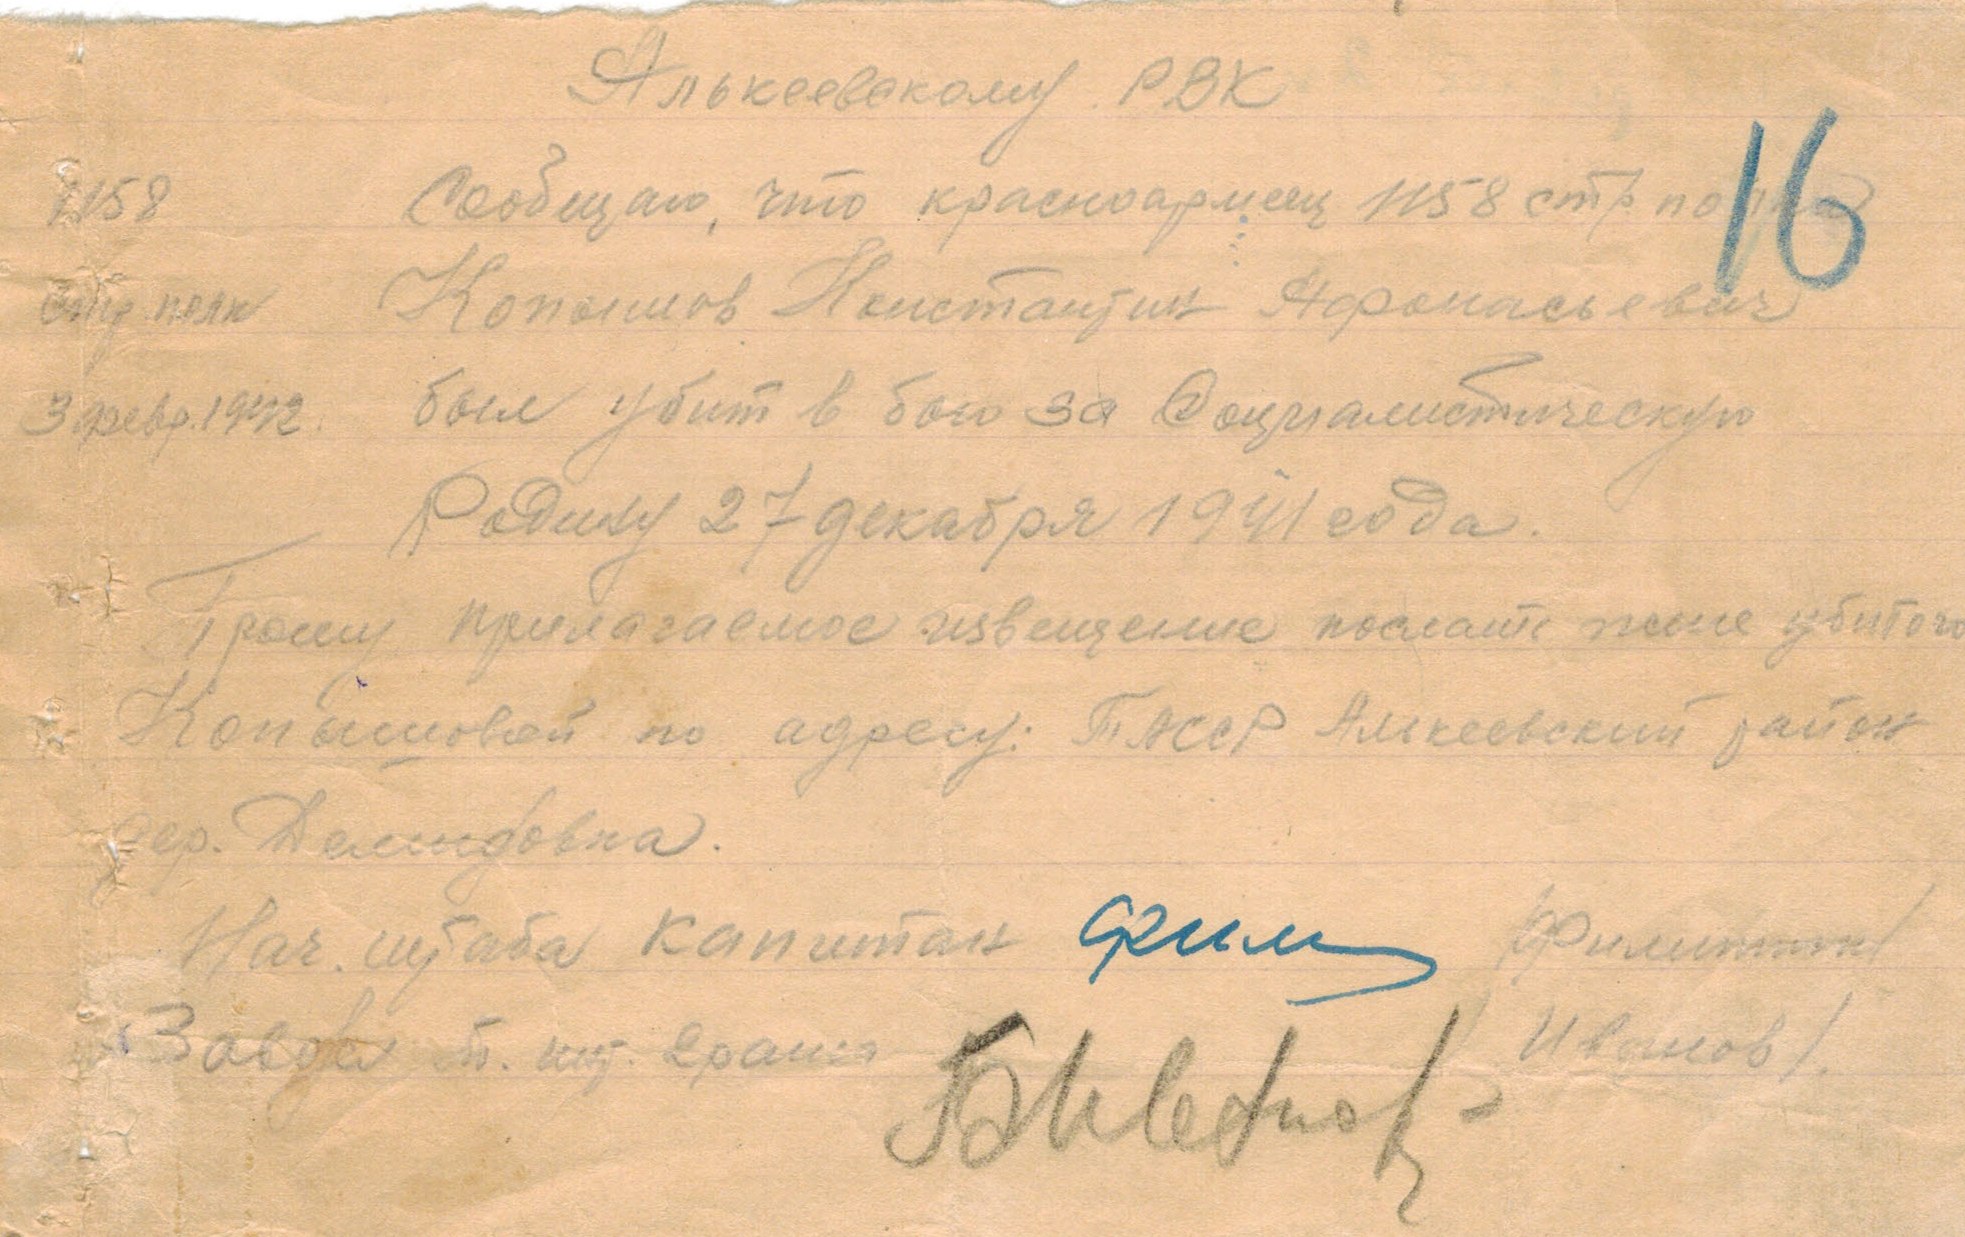 Алькеевскому РВК
16
1158 Сообщаю, что красноармеец 1158 стр полка
Стр. полк Копышов Константин Афонасьевич
3 февр. 1942. был убит в бою за Социалистическую
Родину 27 декабря 1941 года.
Прошу прилагаемое извещение послать жене убитого
Копышовой по адресу: ТАССР Алькеевский район
дер. Демидовка.
Нач. штаба капитан Фили /Филиппов/
Завдел т. инт. 2 ранга /Иванов/.